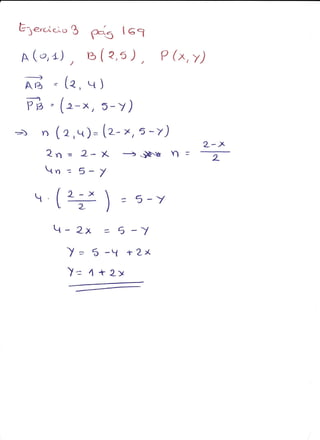 Ejercicio 3 pág 169
A(0,1), B(2,5), P(x,y)
AB = (2, 4)
PB = (2-x, 5-y)
⇒ n(2,4)=(2-x, 5-y)
2n = 2-x → n = (2-x)/2
4n = 5-y
4·((2-x)/2) = 5-y
4-2x = 5-y
y = 5-4+2x
y = 1+2x